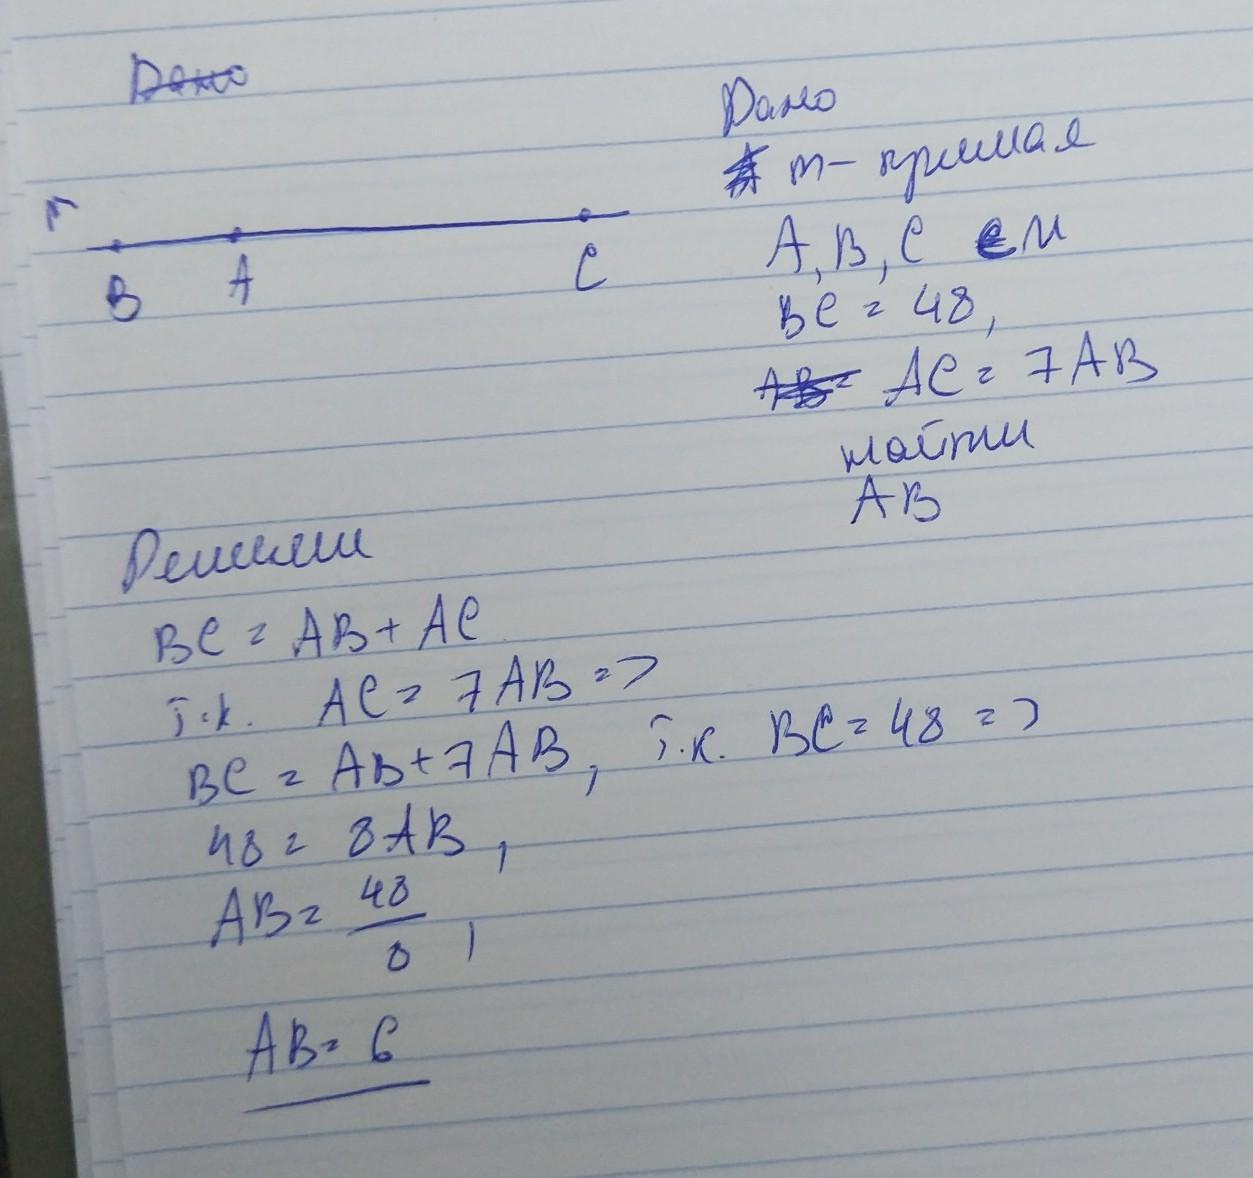 Дано
m
B A C
Дано
m - прямая
A, B, C ∈ m
BC = 48,
AB = AC = 7AB
найти
AB
Решили
BC = AB + AC
т.к. AC = 7AB =>
BC = AB + 7AB, т.к. BC = 48 =>
48 = 8AB,
AB = 48/8,
AB = 6